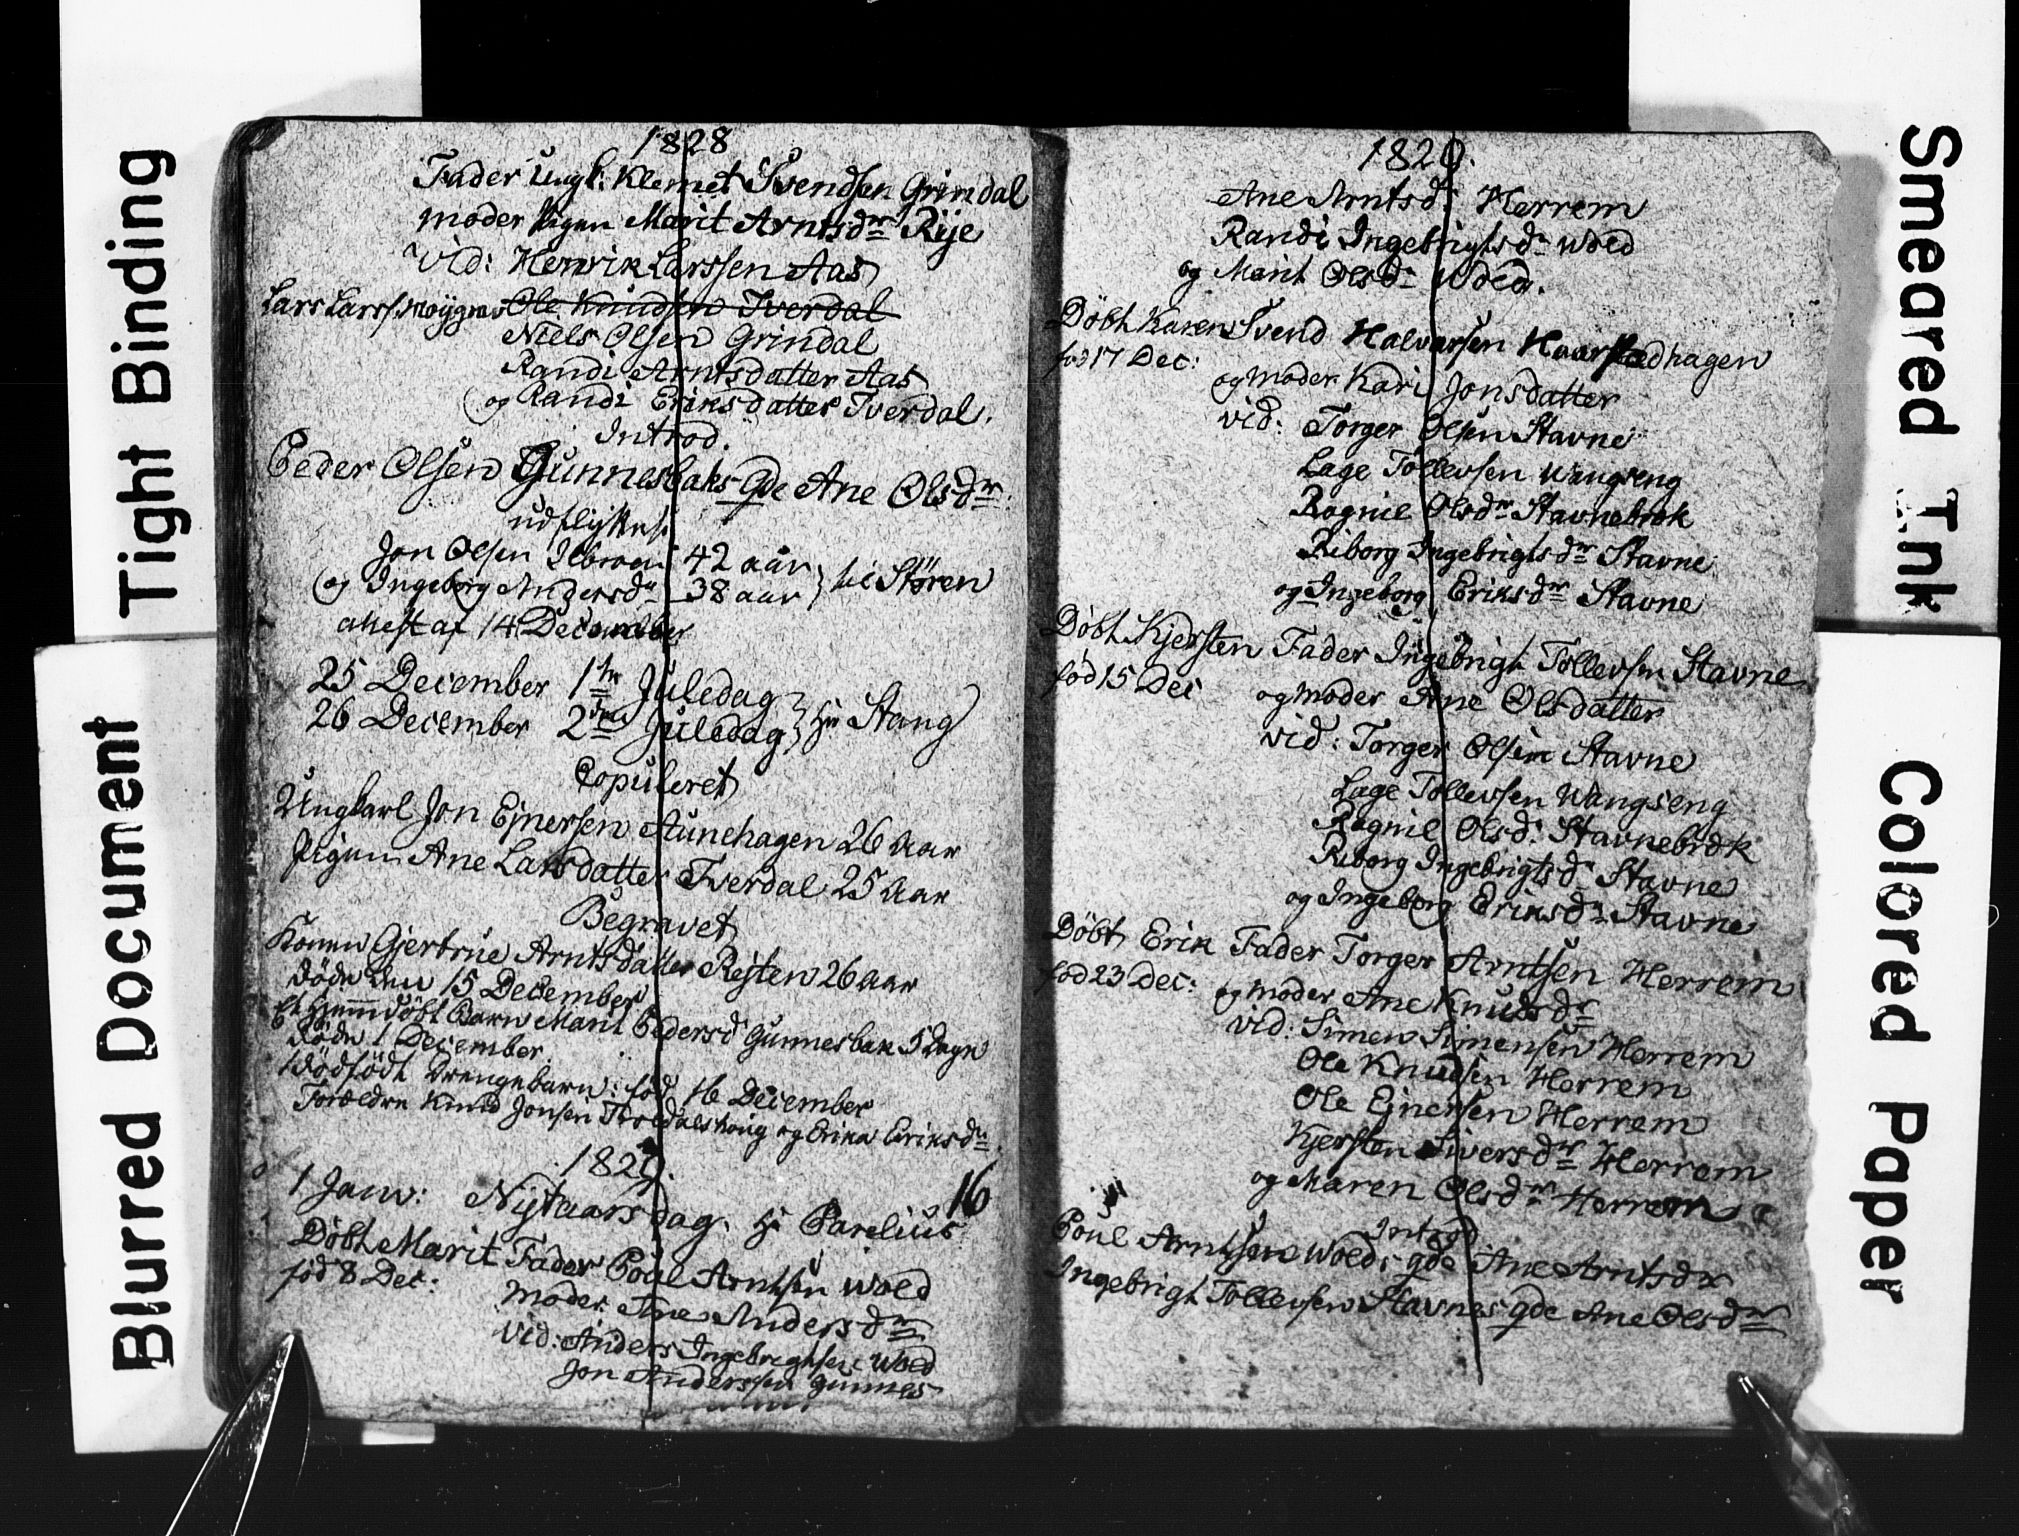 Tight Binding
Blurred Document
1828
Fader Ungk: Klemet Svendsen Grindal
Moder Pigen Marit Arntsdr Rije
Vid: Henrik Larssen Aas
Lars Larss: Ole Knudsen Tverdal
Niels Olsen Grindal
Randi Arntsdatter Aas
og Randi Eriksdatter Tverdal.
Introd.
Peder Olsen Gunnesbaks gde Ane Olsdr:
udflyttest
Jon Olsen 42 aar
og Ingeborg Andersdr 38 aar } til Stören
attest af 14 December
25 December 1te Juledag
26 December 2den Juledag } Hr Stang
Copuleret
Ungkarl Jon Ejnersen Aunehagen 26 Aar
Pigen Ane Larsdatter Tverdal 25 Aar
Begravet
Konen Gjertrue Arntsdatter Rejten 26 aar
döde den 15 December
et Hjemmdöbt Barn Marit Pedersd Gunnesbak 5 Dage
döde 1 December.
1 dödfödt Drengebarn: fød 16 December
Forældre Knud Jonsen og Erika Eriksdr
1829.
16
1 Janu: Nÿtaarsdag. Hr Parelius
Döbt Marit Fader Poul Arntsen Wold
fød 8 Dec: Moder Ane Andersdr
Vid: Anders Ingebrigtsen Wold
Jon Anderssen Gunnes
1829.
Ane Arntsd: Herrem
Randi Ingebrigtsdr Wold
og Marit Olsdr Wold.
Döbt Karen Svend Halvorsen Haarstadhagen
fød 17 Dec: og Moder Kari Jonsdatter
vid: Torger Olsen Stavne
Lage Tollevsen Wangseng
Ragnil Olsdr Stavnebrek
Riborg Ingebrigtsdr Stavne
og Ingeborg Eriksdr Stavne
Döbt Kjersten Fader Ingebrigt Tollevsen Stavne
fød 15 Dec og Moder Ane Olsdatter
vid: Torger Olsen Stavne
Lage Tollevsen Wangseng
Ragnil Olsd: Stavnebrek
Riborg Ingebrigtsdr Stavne
og Ingeborg Eriksdr Stavne
Döbt Erik Fader Torger Arntsen Herrem
fød 23 Dec: og Moder Ane Knudsdr
vid: Simen Simensen Herrem
Ole Knudsen Herrem
Ole Ejnersen Herrem
Kjersten Siversdr Herrem
og Maren Olsdr Herrem
Introd.
Poul Arntsen Wolds gde Ane Arntsdr
Ingebrigt Tollevsen Stavnes gde Ane Olsdr
Smeared Ink
Colored Paper